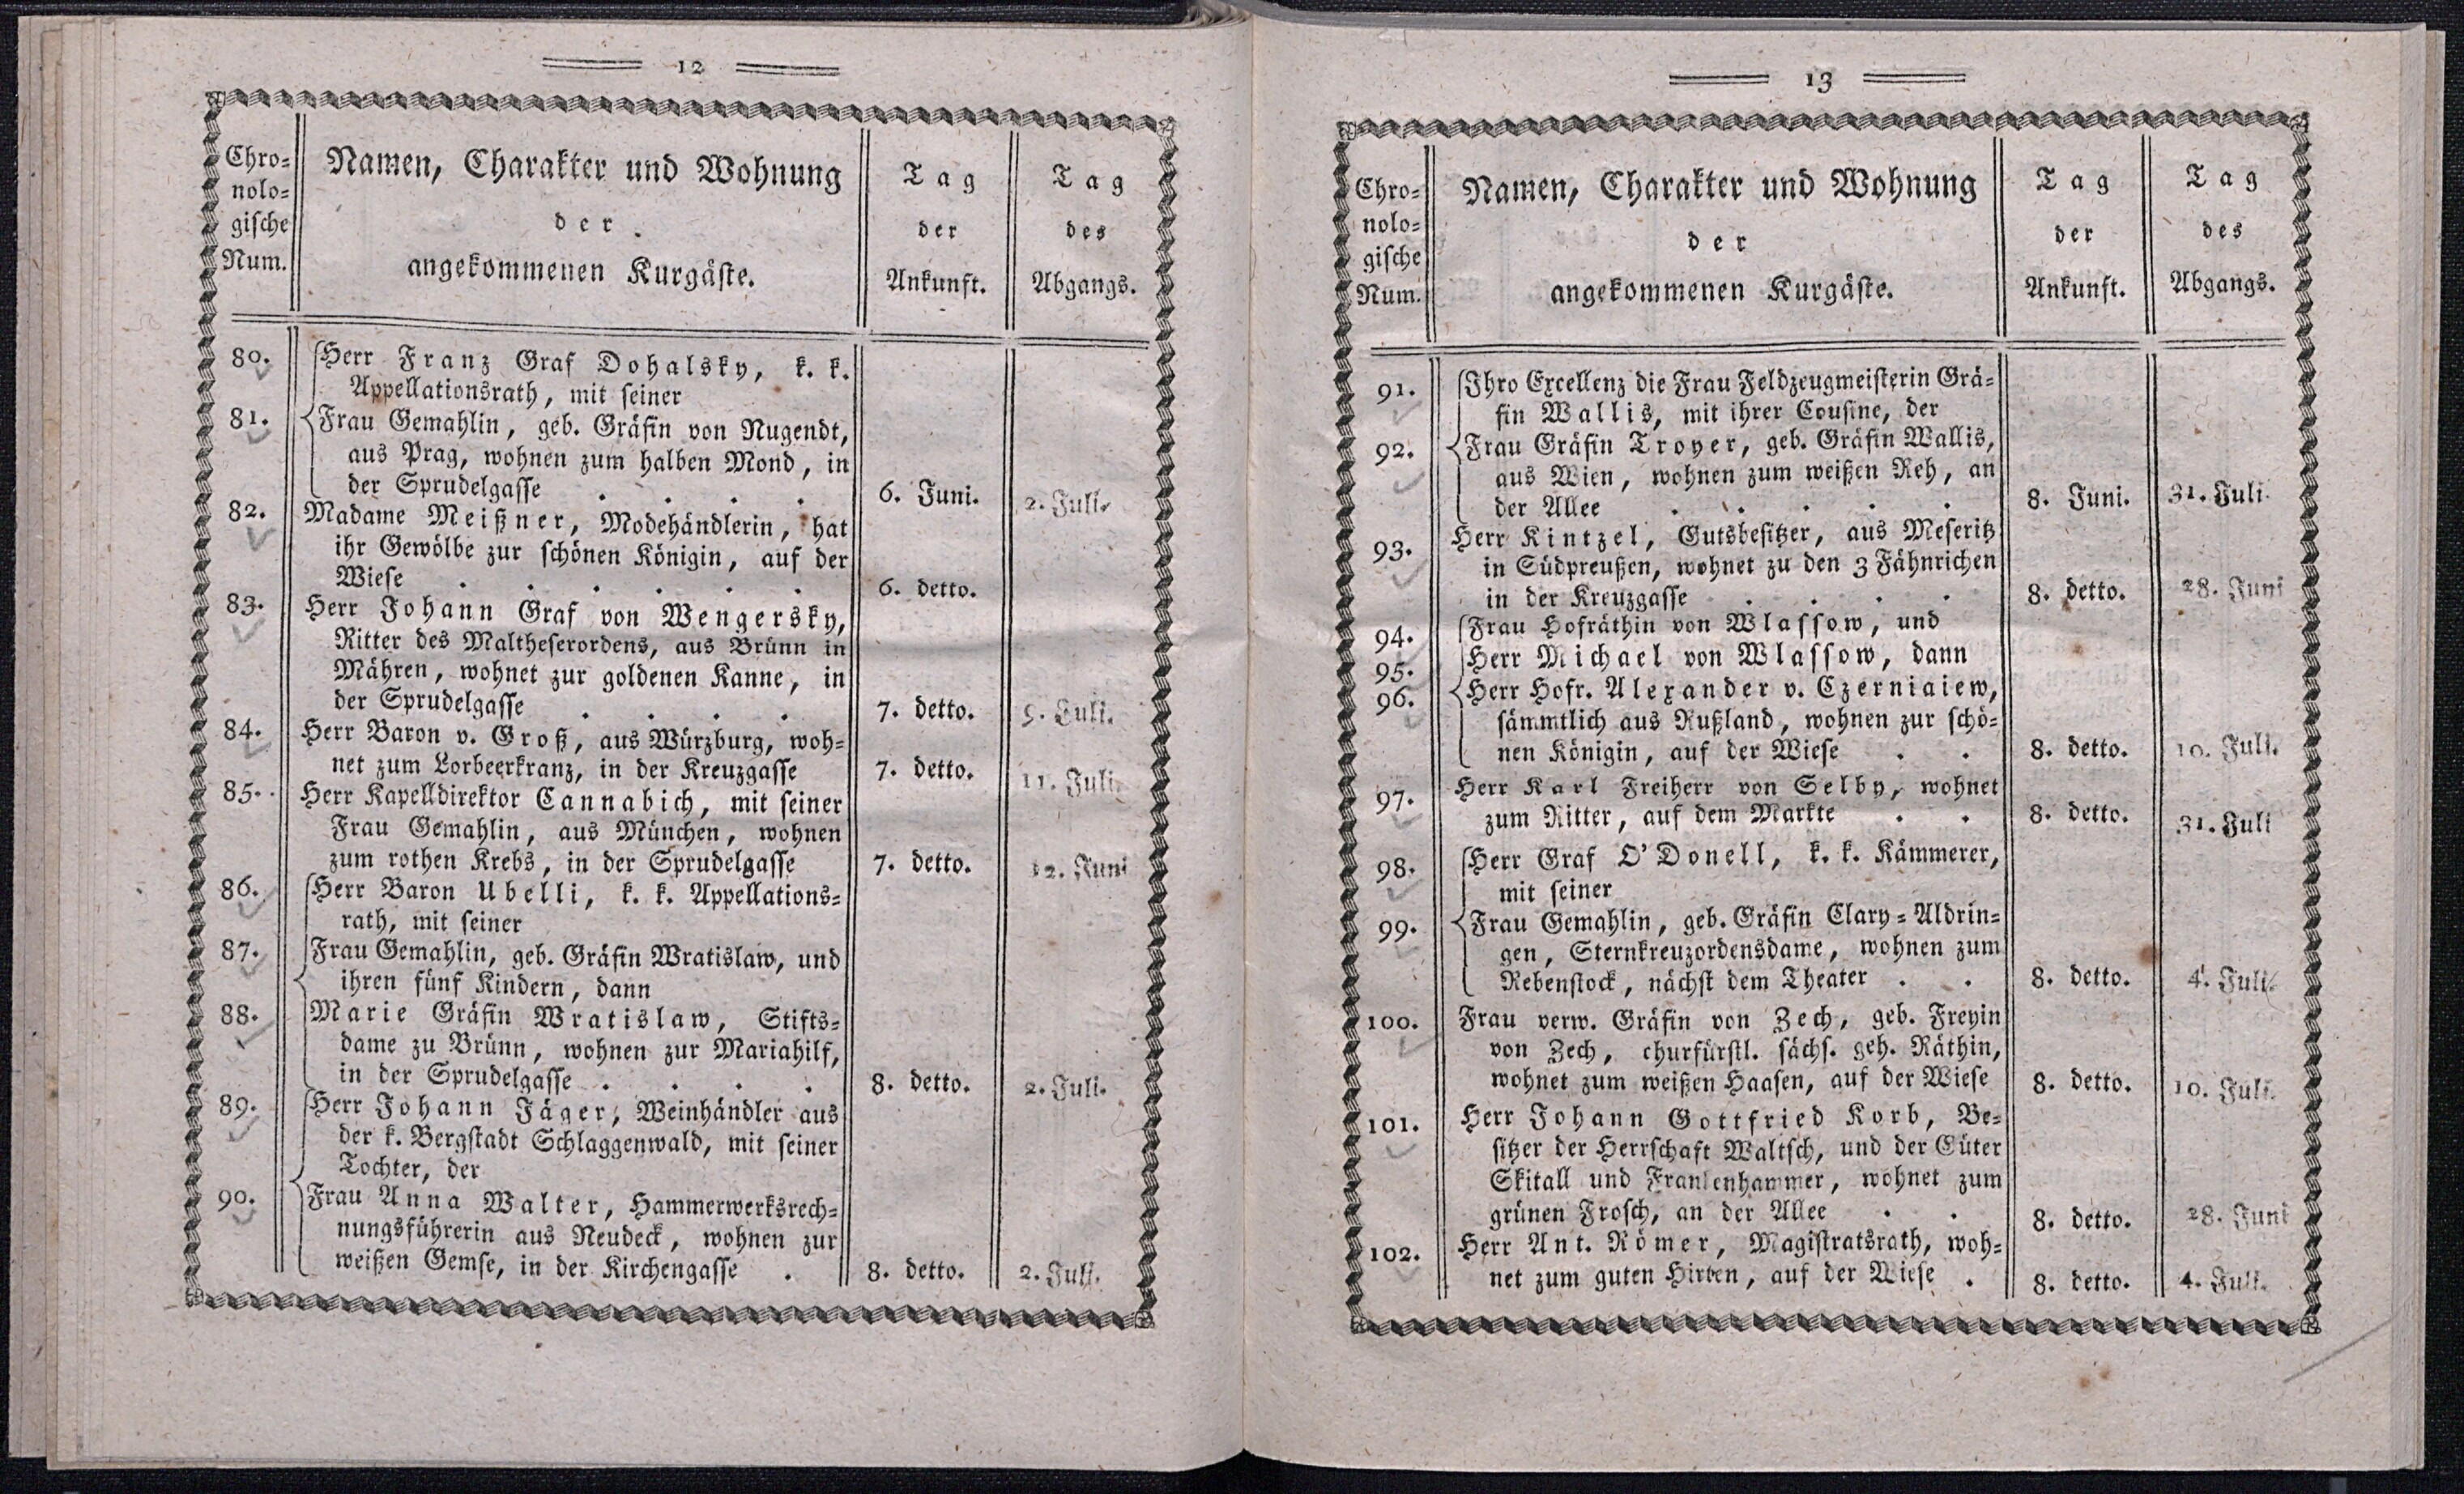 12
Chro=
nolo=
gische
Num.
Namen, Charakter und Wohnung
der
angekommenen Kurgäste.
Tag
der
Ankunft.
Tag
des
Abgangs.
80. Herr Franz Graf Dohalsky, k. k.
Appellationsrath, mit seiner
81. Frau Gemahlin, geb. Gräfin von Nugendt,
aus Prag, wohnen zum halben Mond, in
der Sprudelgasse . . . . 6. Juni. 2. Juli.
82. Madame Meißner, Modehändlerin, hat
ihr Gewölbe zur schönen Königin, auf der
Wiese . . . . . . 6. detto.
83. Herr Johann Graf von Wengersky,
Ritter des Maltheserordens, aus Brünn in
Mähren, wohnet zur goldenen Kanne, in
der Sprudelgasse . . . . 7. detto. 9. Juli.
84. Herr Baron v. Groß, aus Würzburg, woh=
net zum Lorbeerkranz, in der Kreuzgasse 7. detto. 11. Juli.
85. Herr Kapelldirektor Cannabich, mit seiner
Frau Gemahlin, aus München, wohnen
zum rothen Krebs, in der Sprudelgasse 7. detto. 12. Juni
86. Herr Baron Ubelli, k. k. Appellations=
rath, mit seiner
87. Frau Gemahlin, geb. Gräfin Wratislaw, und
ihren fünf Kindern, dann
88. Marie Gräfin Wratislaw, Stifts=
dame zu Brünn, wohnen zur Mariahilf,
in der Sprudelgasse . . . . 8. detto. 2. Juli.
89. Herr Johann Jäger, Weinhändler aus
der k. Bergstadt Schlaggenwald, mit seiner
Tochter, der
90. Frau Anna Walter, Hammerwerksrech=
nungsführerin aus Neudeck, wohnen zur
weißen Gemse, in der Kirchengasse . 8. detto. 2. Juli.
13
Chro=
nolo=
gische
Num.
Namen, Charakter und Wohnung
der
angekommenen Kurgäste.
Tag
der
Ankunft.
Tag
des
Abgangs.
91. Ihro Excellenz die Frau Feldzeugmeisterin Grä=
fin Wallis, mit ihrer Cousine, der
92. Frau Gräfin Troyer, geb. Gräfin Wallis,
aus Wien, wohnen zum weißen Reh, an
der Allee . . . . . 8. Juni. 31. Juli.
93. Herr Kintzel, Gutsbesitzer, aus Meseritz
in Südpreußen, wohnet zu den 3 Fähnrichen
in der Kreuzgasse . . . . 8. detto. 28. Juni
94. Frau Hofräthin von Wlassow, und
95. Herr Michael von Wlassow, dann
96. Herr Hofr. Alexander v. Czerniaiew,
sämmtlich aus Rußland, wohnen zur schö=
nen Königin, auf der Wiese . . 8. detto. 10. Juli.
97. Herr Karl Freiherr von Selby, wohnet
zum Ritter, auf dem Markte . . 8. detto. 31. Juli
98. Herr Graf O'Donell, k. k. Kämmerer,
mit seiner
99. Frau Gemahlin, geb. Gräfin Clary=Aldrin=
gen, Sternkreuzordensdame, wohnen zum
Rebenstock, nächst dem Theater . . 8. detto. 4. Juli.
100. Frau verw. Gräfin von Zech, geb. Freyin
von Zech, churfürstl. sächs. geh. Räthin,
wohnet zum weißen Haasen, auf der Wiese 8. detto. 10. Juli.
101. Herr Johann Gottfried Korb, Be=
sitzer der Herrschaft Waltsch, und der Güter
Skitall und Frankenhammer, wohnet zum
grünen Frosch, an der Allee . . 8. detto. 28. Juni
102. Herr Ant. Römer, Magistratsrath, woh=
net zum guten Hirten, auf der Wiese . 8. detto. 4. Juli.